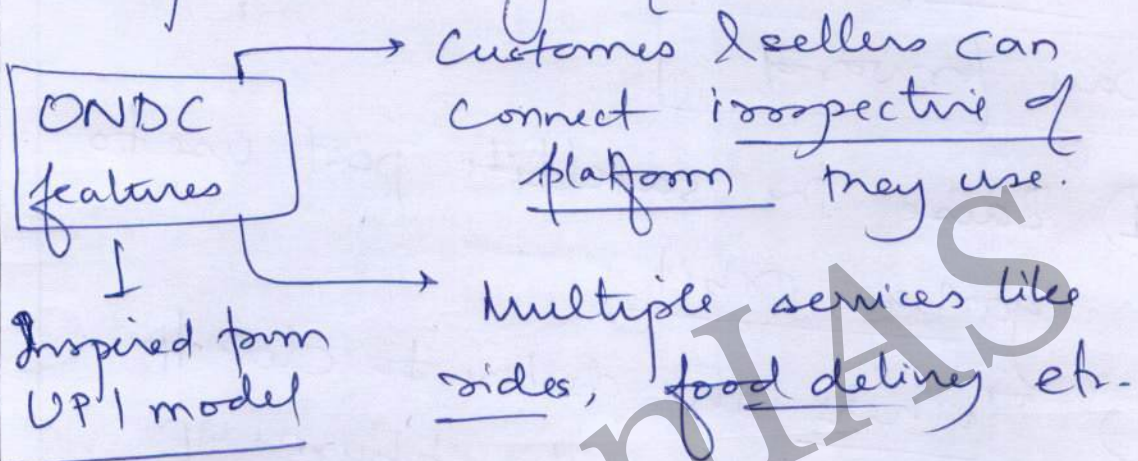 ONDC
features
Inspired from
UPI model
Customes & sellers can
connect irrospective of
platform they use.
Multiple services like
rides, food delivery etc.
nIAS